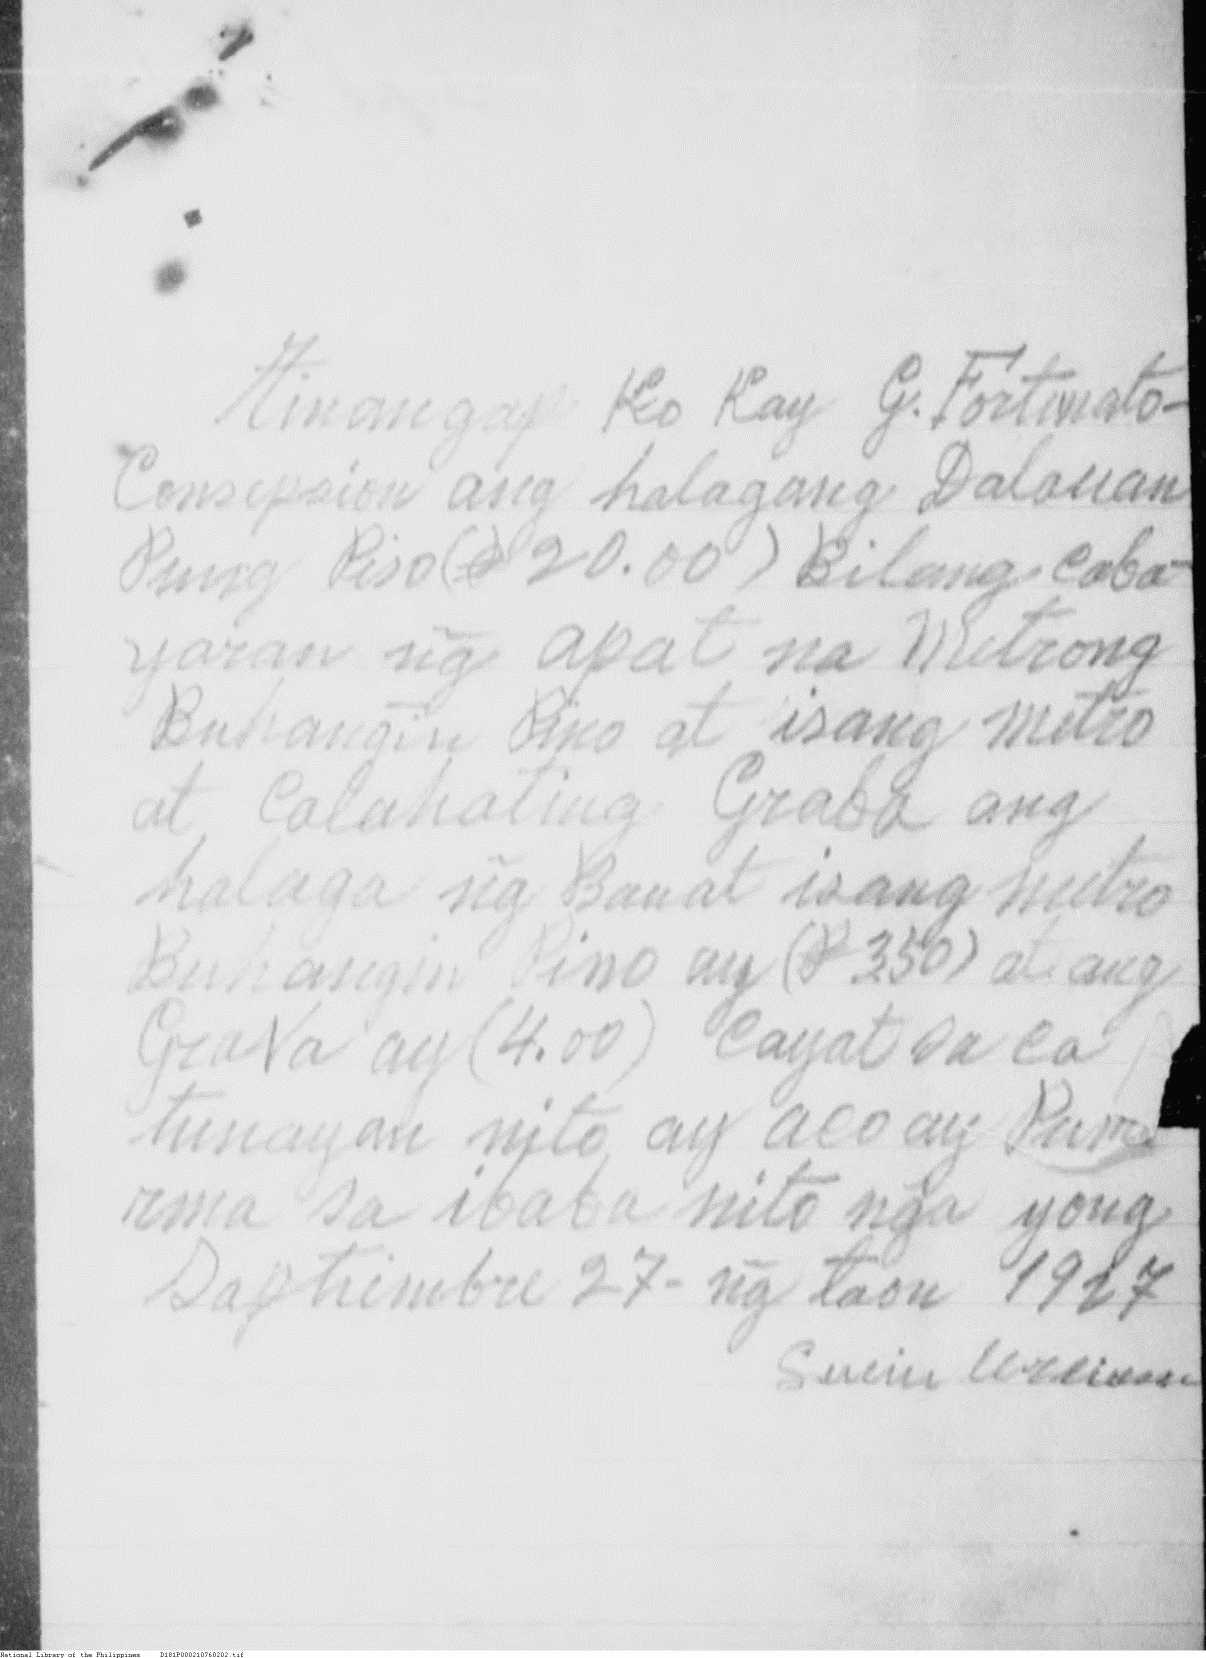 Tinangap Ko Kay G. Fortunato-
Consepsion ang halagang Dalauan
Pung Piso (₱ 20.00) Bilang caba-
yaran ng̃ apat na Metrong
Buhangin Pino at isang metro
at Calahating Graba ang
halaga ng̃ Bauat isang metro
Buhangin Pino ay (₱ 3.50) at ang
GraVa ay (4.00) Cayat sa ca
tunayan nito ay aco ay Pume
rma sa ibaba nito ng̃a yong
Saptiembre 27- ng̃ taon 1927
National Library of the Philippines D181P000210760202.tif